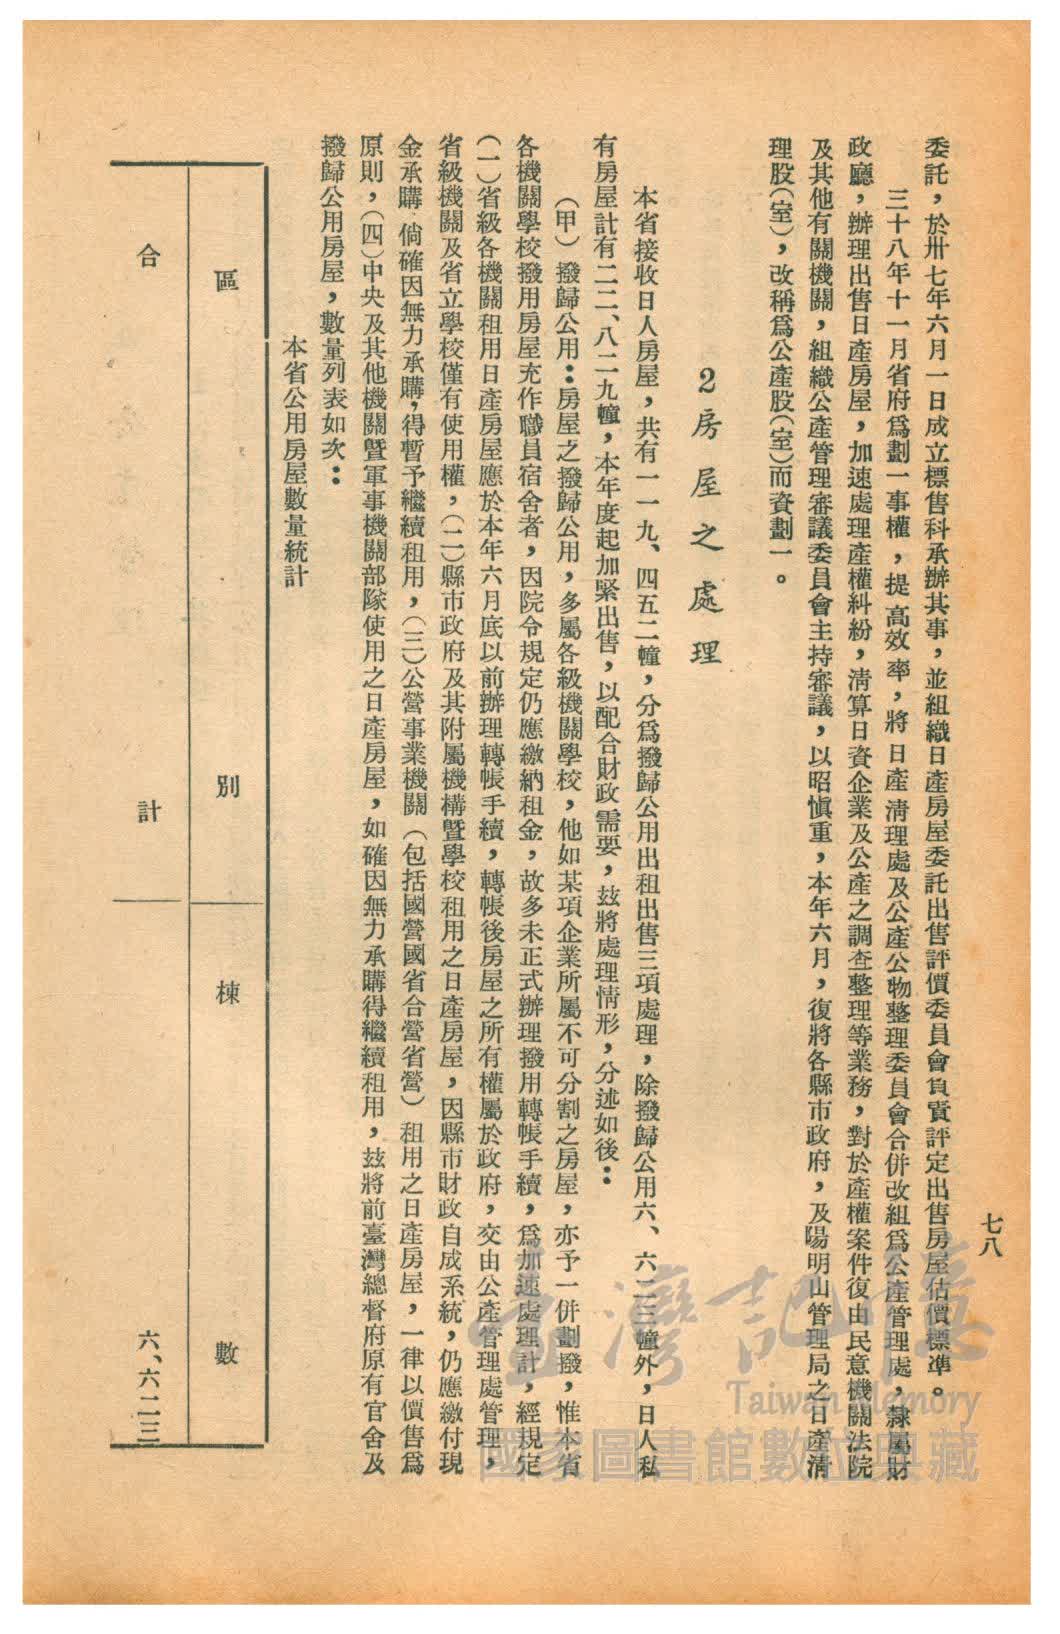 七八
委託，於卅七年六月一日成立標售科承辦其事，並組織日產房屋委託出售評價委員會負責評定出售房屋估價標準。
三十八年十一月省府爲劃一事權，提高效率，將日產淸理處及公產公物整理委員會合併改組爲公產管理處，隸屬財
政廳，辦理出售日產房屋，加速處理產權糾紛，淸算日資企業及公產之調查整理等業務，對於產權案件復由民意機關法院
及其他有關機關，組織公產管理審議委員會主持審議，以昭愼重，本年六月，復將各縣市政府，及陽明山管理局之日產淸
理股(室)，改稱爲公產股(室)而資劃一。
2房屋之處理
本省接收日人房屋，共有一一九、四五二幢，分爲撥歸公用出租出售三項處理，除撥歸公用六、六二三幢外，日人私
有房屋計有二二、八二九幢，本年度起加緊出售，以配合財政需要，玆將處理情形，分述如後：
(甲)撥歸公用：房屋之撥歸公用，多屬各級機關學校，他如某項企業所屬不可分割之房屋，亦予一併劃撥，惟本省
各機關學校撥用房屋充作職員宿舍者，因院令規定仍應繳納租金，故多未正式辦理撥用轉帳手續，爲加速處理計，經規定
(一)省級各機關租用日產房屋應於本年六月底以前辦理轉帳手續，轉帳後房屋之所有權屬於政府，交由公產管理處管理，
省級機關及省立學校僅有使用權，(二)縣市政府及其附屬機構曁學校租用之日產房屋，因縣市財政自成系統，仍應繳付現
金承購，倘確因無力承購，得暫予繼續租用，(三)公營事業機關(包括國營國省合營省營)租用之日產房屋，一律以價售爲
原則，(四)中央及其他機關曁軍事機關部隊使用之日產房屋，如確因無力承購得繼續租用，玆將前臺灣總督府原有官舍及
撥歸公用房屋，數量列表如次：
本省公用房屋數量統計
區別　棟數
合計　六、六二三
臺灣記憶
Taiwan Memory
國家圖書館數位典藏